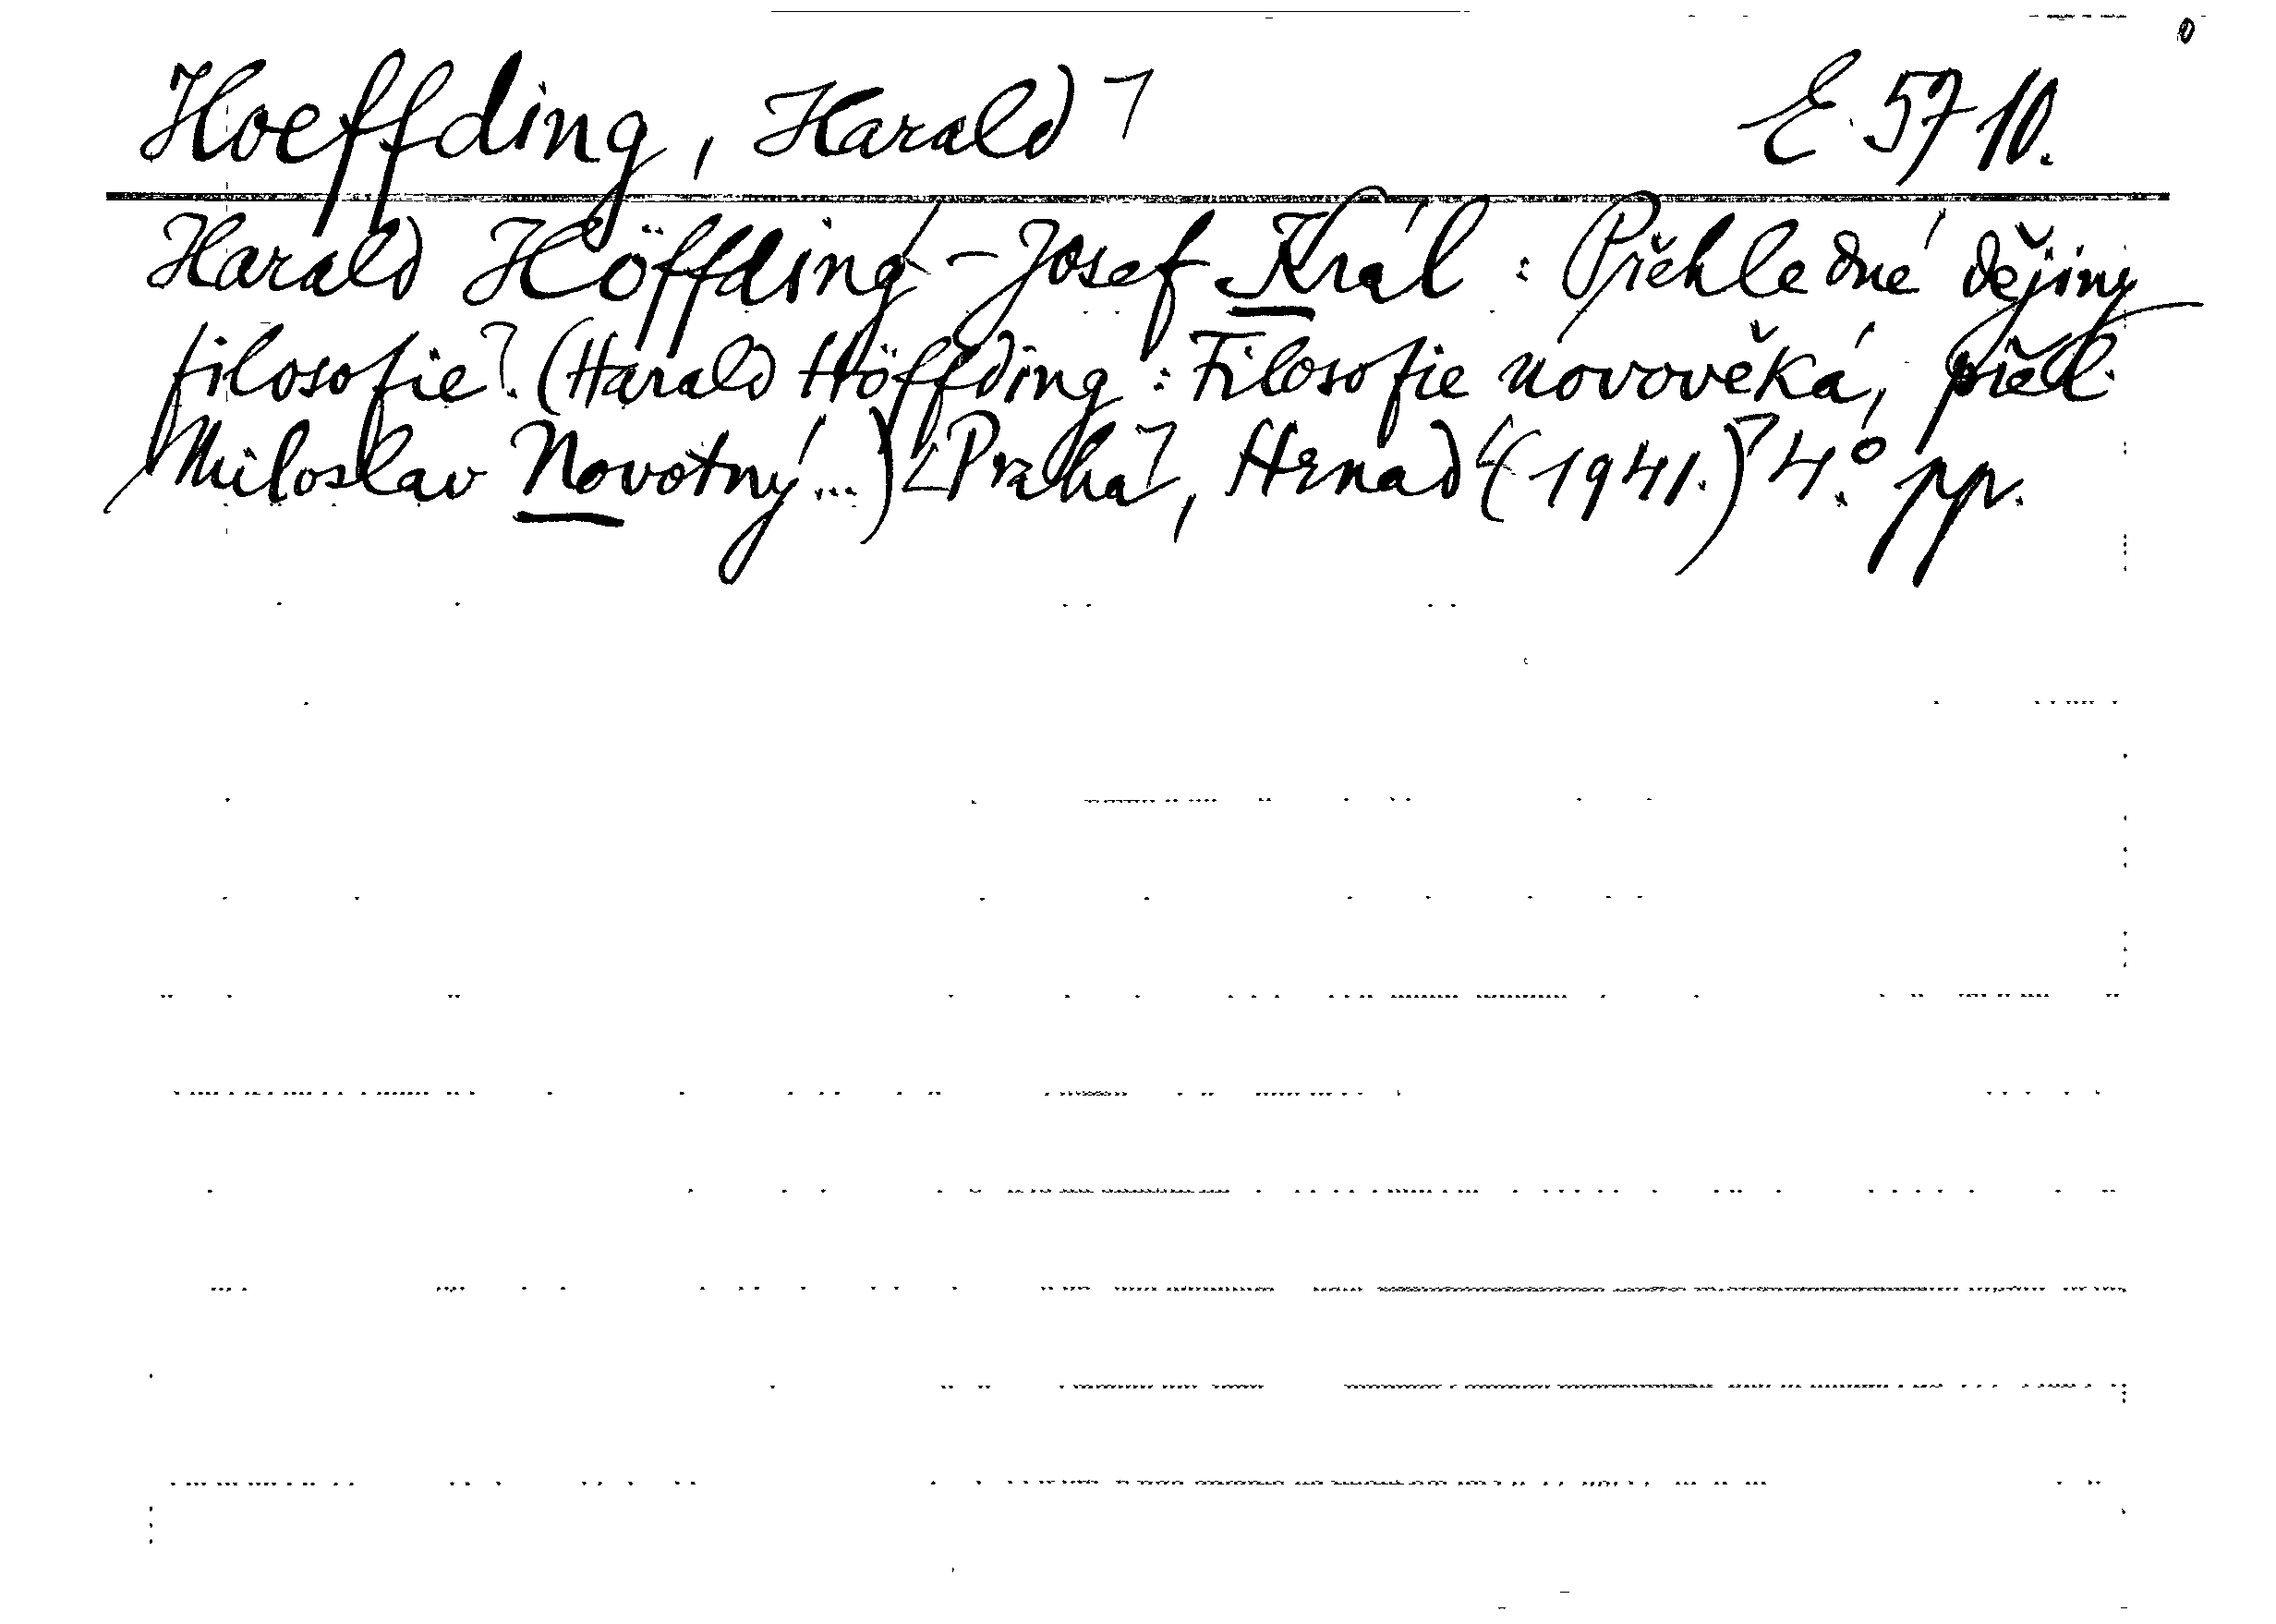 Hoeffding, Harald ⌝ E. 5710.
Harald Höffding - Josef Král : Přěhledné dějiny
filosofie⌉. (Harald Höffding : Filosofie novověká, přel.
Miloslav Novotný...) ∠Praha⌉, Hrnad (1941.) 4.° pp.